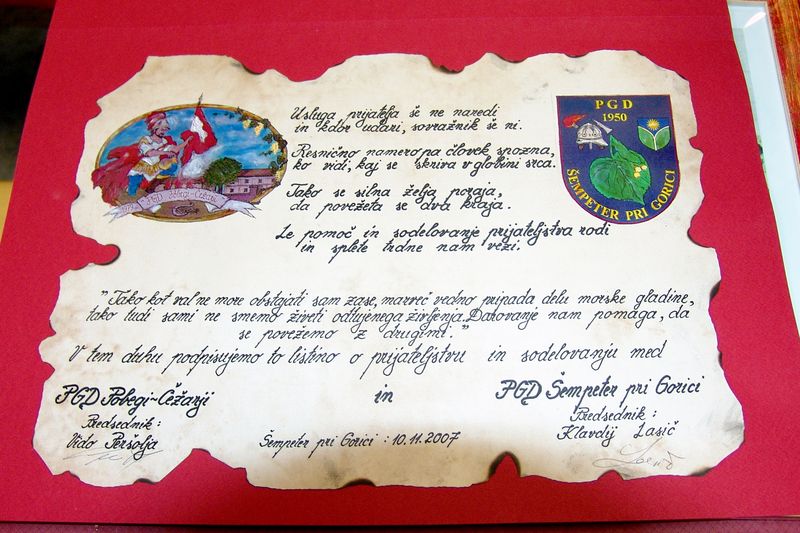 Usluga prijatelja še ne naredi
in kdor udari, sovražnik še ni.
Resnično namero pa človek spozna,
ko vidi, kaj se skriva v globini srca.
Tako se silna želja poraja,
da povežeta se dva kraja.
Le pomoč in sodelovanje prijateljstva rodi
in splete trdne nam vezi.
PGD Pobegi-Čežarji
PGD
1950
ŠEMPETER PRI GORICI
"Tako kot val ne more obstajati sam zase, marveč vedno pripada delu morske gladine,
tako tudi sami ne smemo živeti odtujenega življenja. Darovanje nam pomaga, da
se povežemo z drugimi."
V tem duhu podpisujemo to listino o prijateljstvu in sodelovanju med
PGD Pobegi-Čežarji in PGD Šempeter pri Gorici
Predsednik: Predsednik:
Vido Peršolja Šempeter pri Gorici : 10.11.2007 Klavdij Lasič